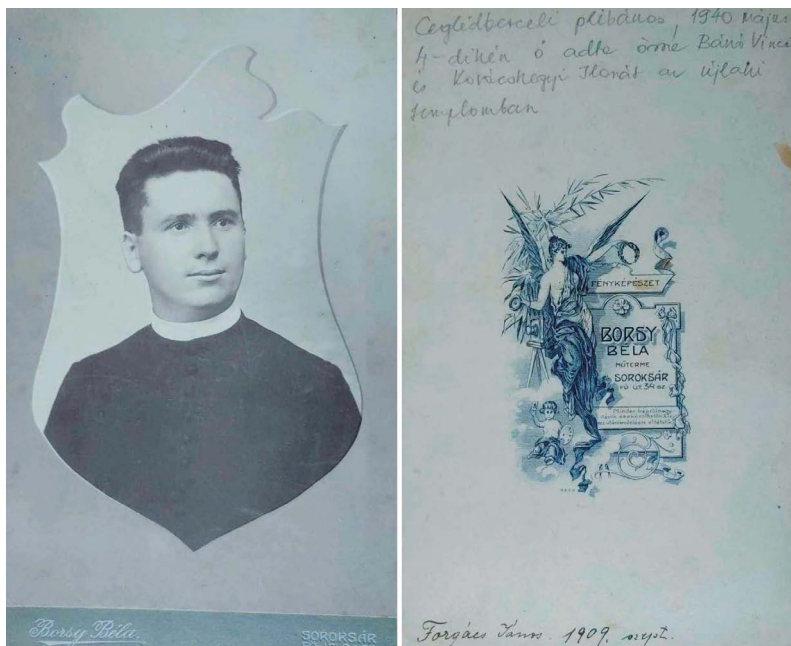 Borsy Béla.
SOROKSÁR
FŐ ÚT 34
Ceglédberceli plébános, 1940 május
4-dikén ő adta össze Bánó Vince
és Kovácshegyi Ilonát az újlaki
templomban
FÉNYKÉPÉSZET
BORSY
BÉLA
MŰTERME
SOROKSÁR
FŐ ÚT 34 SZ
Forgács János. 1909. szept.